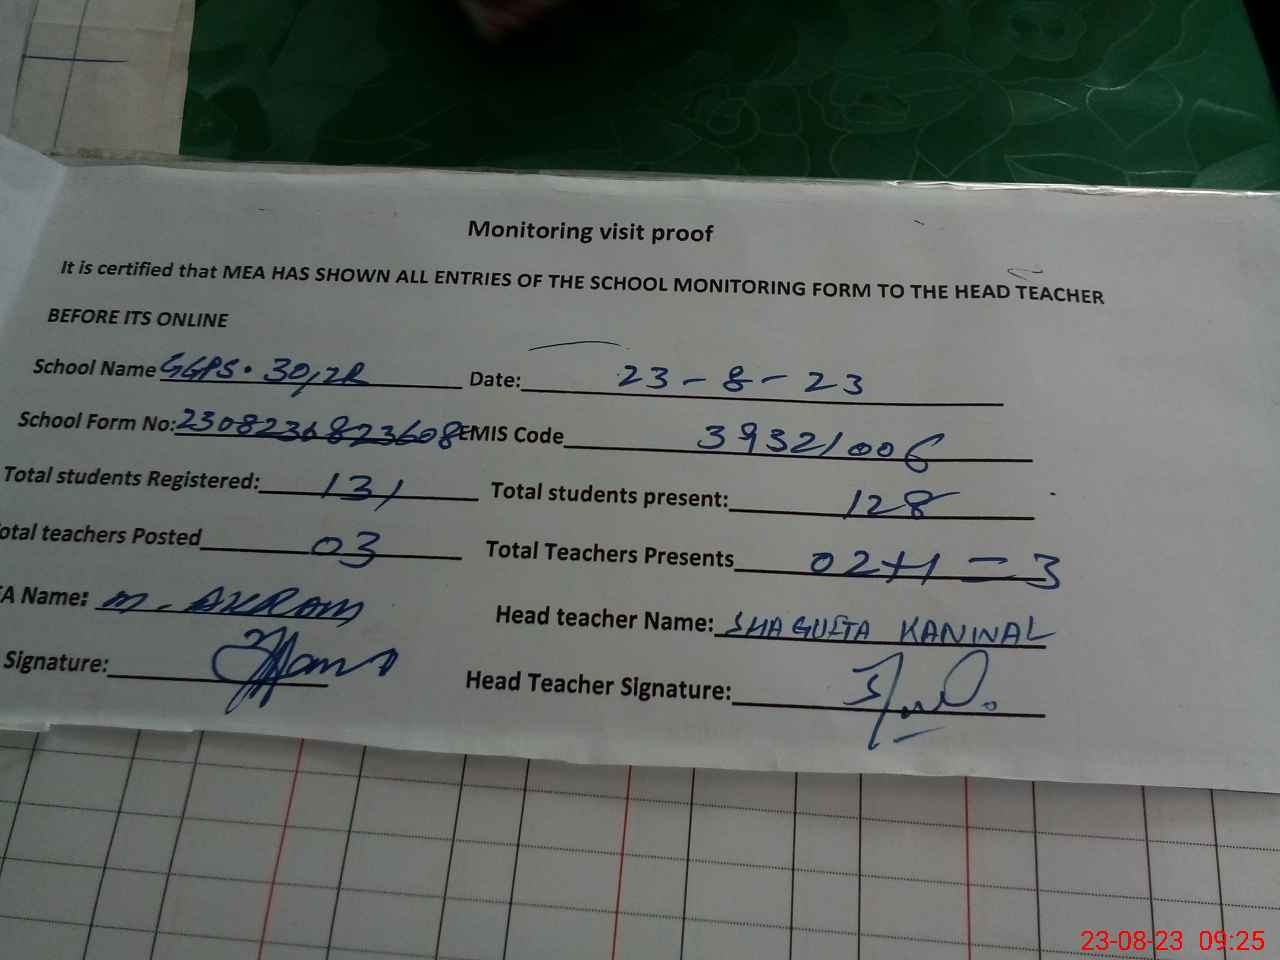 Monitoring visit proof
It is certified that MEA HAS SHOWN ALL ENTRIES OF THE SCHOOL MONITORING FORM TO THE HEAD TEACHER
BEFORE ITS ONLINE
School Name GGPS. 30/2R Date: 23-8-23
School Form No: 2308236823608 EMIS Code 39321006
Total students Registered: 131 Total students present: 128
otal teachers Posted 03 Total Teachers Presents 02+1=3
A Name: M. AKRAM Head teacher Name: SHAGUFTA KANWAL
Signature: Head Teacher Signature:
23-08-23 09:25